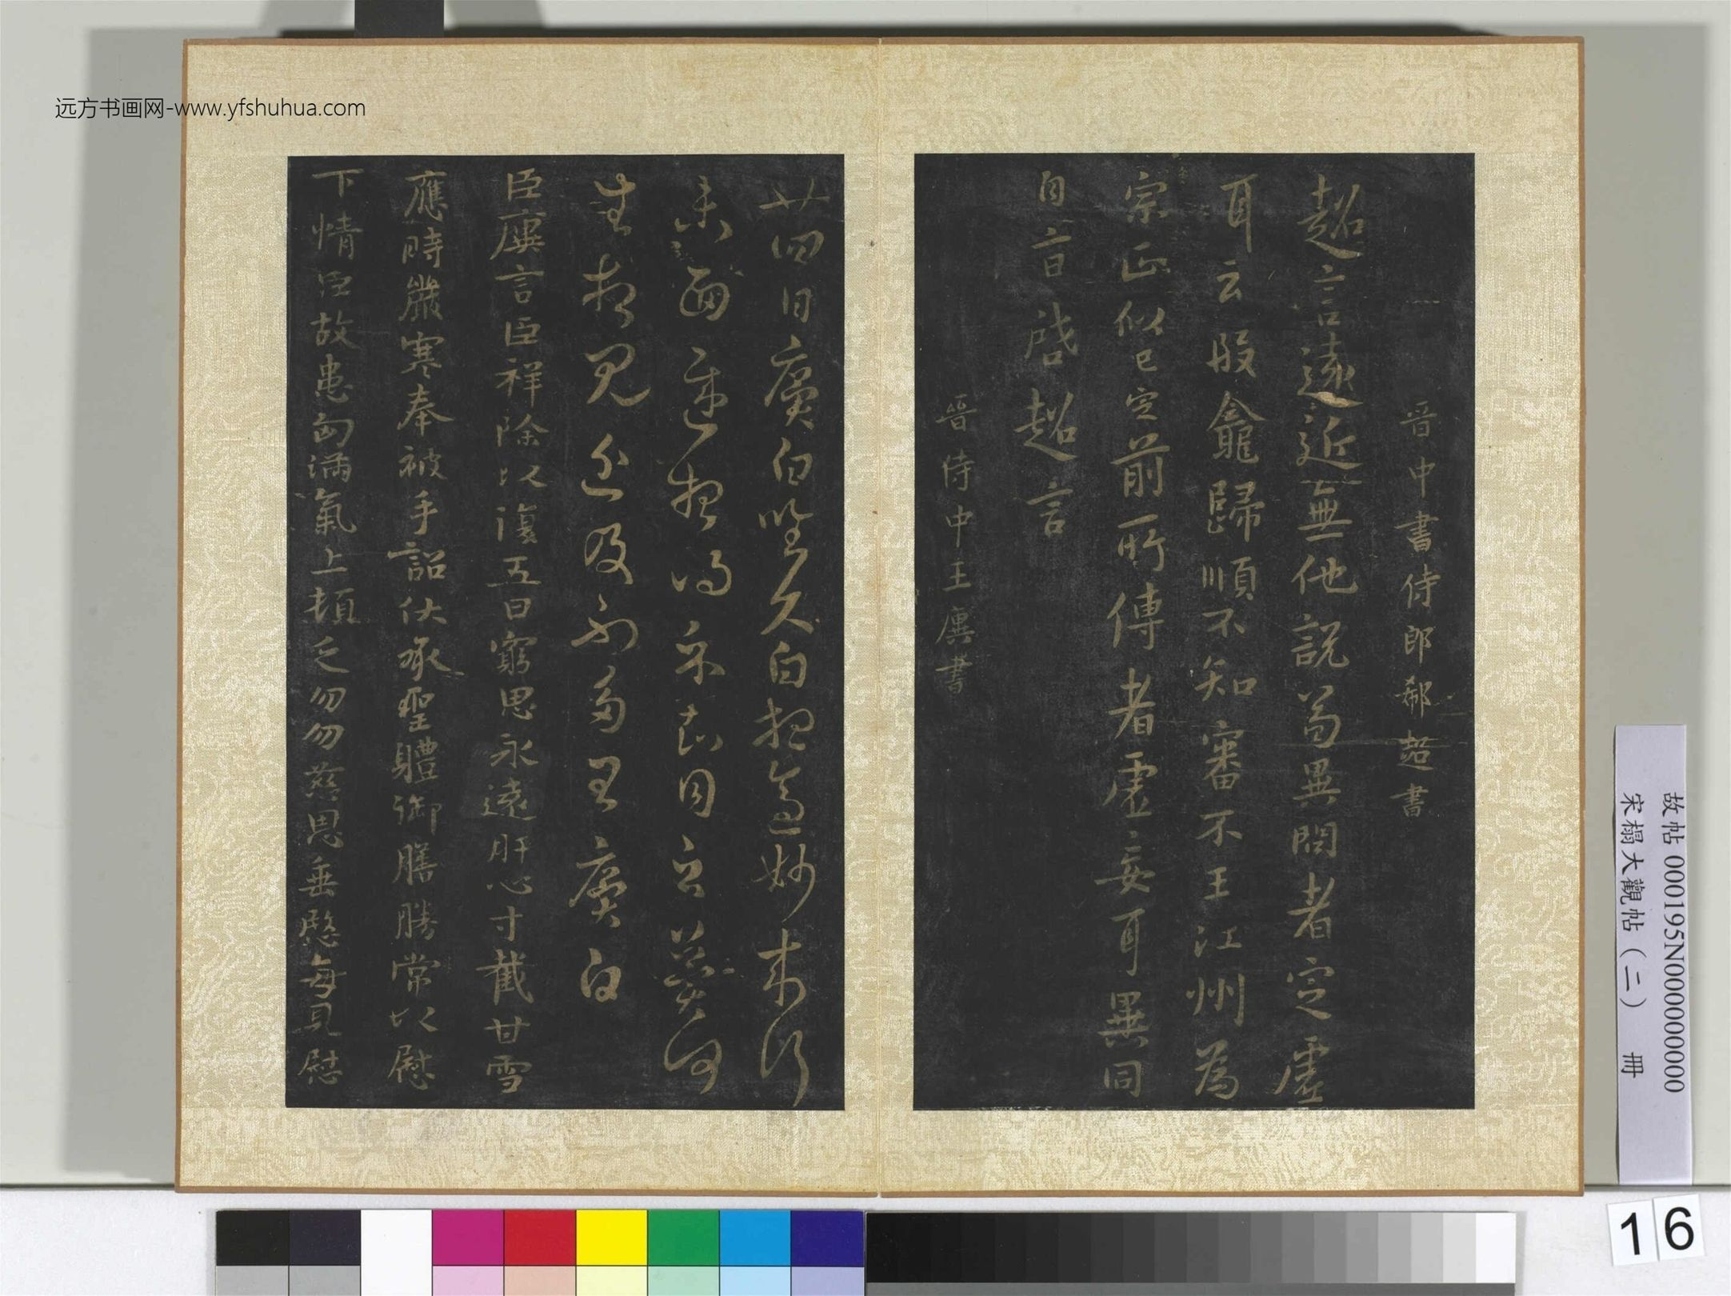 远方书画网-www.yfshuhua.com
晉中書侍郎郗超書
超言遠近無他說荀異問者定虛
耳云股龕歸順不知審不王江州為
宗正似已定前所傳者虛妄耳異同
自啓超言
晉侍中王廙書
廿四日廙白昨久白想妙
未面遲想得示知同之冀何
生相見近及不多王廙白
臣廙言臣祥除以復五日窮思永遠肝心寸截甘雪
應時嚴寒奉被手詔伏承聖體御膳勝常以慰
下情臣故患匈滿氣上頓乏勿勿慈恩垂愍每見慰
故帖 000195N000000000
宋榻大觀帖(二) 冊
16